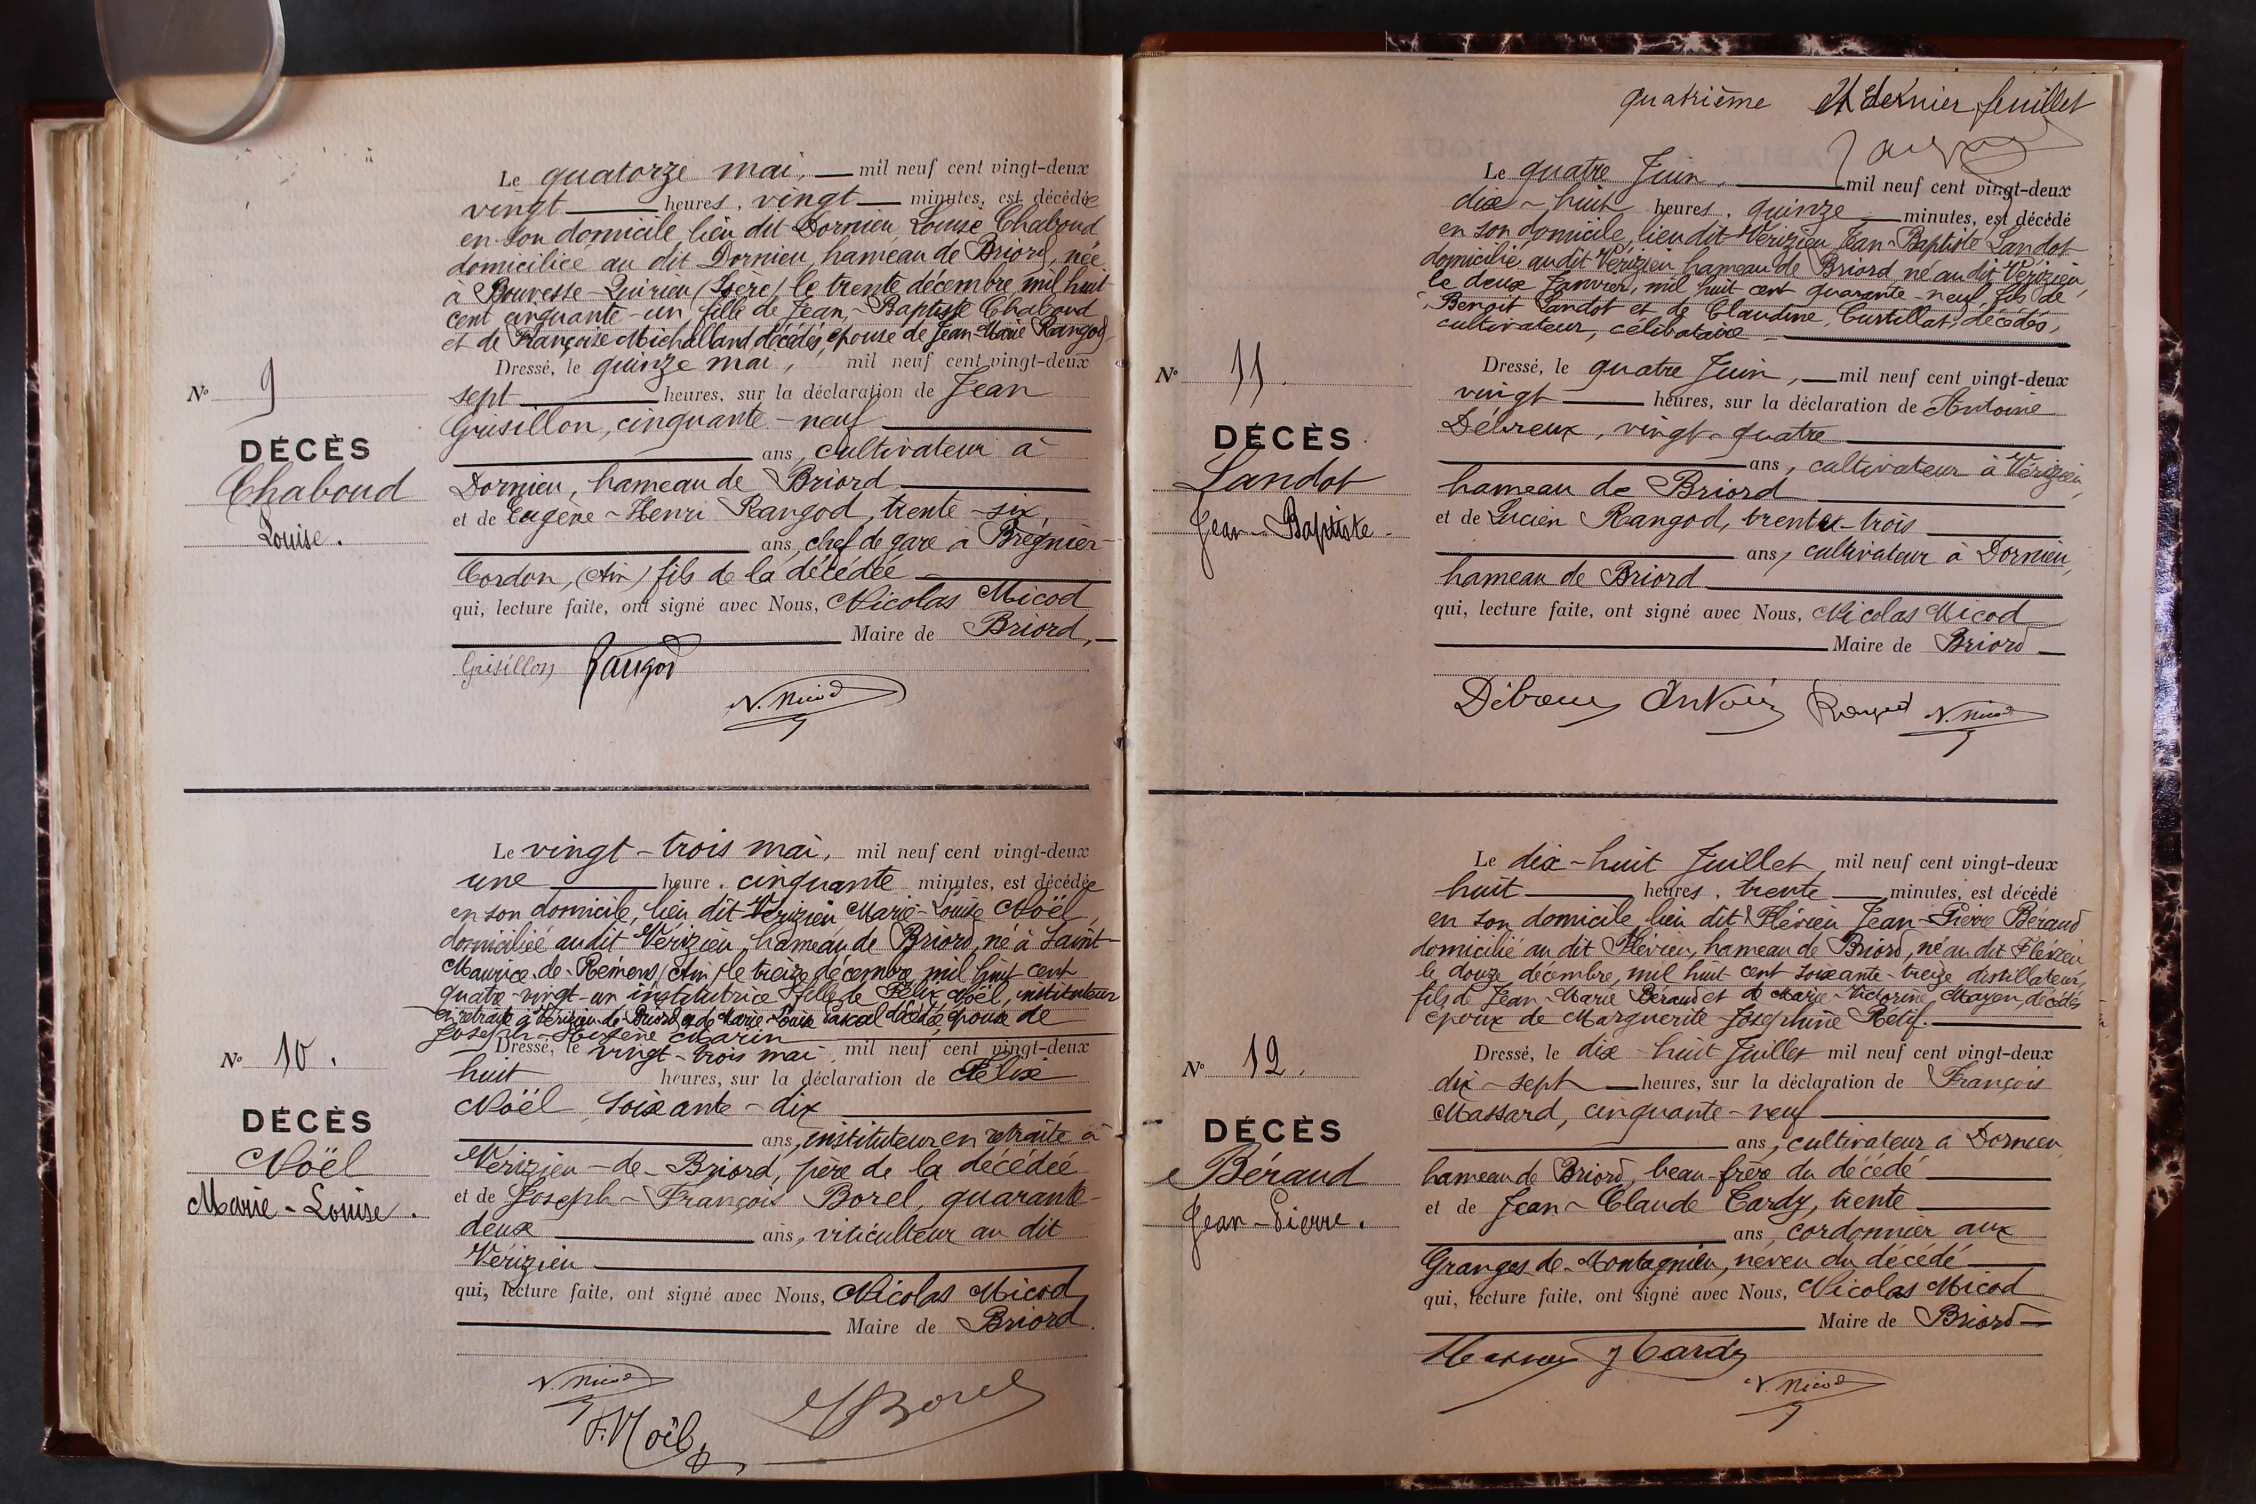 Le quatorze mai, mil neuf cent vingt-deux
vingt heures, vingt minutes, est décédée
en son domicile, lieu dit Dornieu Louise Chaboud
domiciliée au dit Dornieu, hameau de Briord, née
à Bouvesse-Quirieu (Isère) le trente décembre, mil huit
cent cinquante-un fille de Jean-Baptiste Chaboud
et de Françoise Michalland décédés, épouse de Jean-Marie Rangod
Dressé, le quinze mai, mil neuf cent vingt-deux
sept heures, sur la déclaration de Jean
Grisillon, cinquante-neuf
ans, cultivateur à
Dornieu, hameau de Briord
et de Eugène-Henri Rangod, trente-six,
ans, chef de gare à Brégnier-
Cordon, (Ain) fils de la décédée
qui, lecture faite, ont signé avec Nous, Nicolas Micod
Maire de Briord,
Grisillon Rangod
N. Micod
No 9
DÉCÈS
Chaboud
Louise.
Le vingt-trois mai, mil neuf cent vingt-deux
une heure, cinquante minutes, est décédée
en son domicile, lieu dit Vérizieu Marie-Louise Noël,
domiciliée au dit Vérizieu, hameau de Briord, né à Saint-
Maurice-de-Rémens (Ain) le treize décembre, mil huit cent
quatre-vingt-un institutrice fille de Félix Noël, instituteur
en retraite à Vérizieu de Briord et de Marie-Louise Pascal décédée épouse de
Joseph-Eugène Marin
Dressé, le vingt-trois mai mil neuf cent vingt-deux
huit heures, sur la déclaration de Félix
Noël soixante-dix
ans, instituteur en retraite à
Vérizieu-de-Briord, père de la décédée
et de Joseph-François Borel, quarante-
deux ans, viticulteur au dit
Vérizieu
qui, lecture faite, ont signé avec Nous, Nicolas Micod
Maire de Briord.
N. Micod
F. Noël
Borel
No 10.
DÉCÈS
Noël
Marie-Louise.
quatrième et dernier feuillet
Le quatre Juin, mil neuf cent vingt-deux
dix-huit heures, quinze minutes, est décédé
en son domicile, lieu dit Vérizieu Jean-Baptiste Landot
domicilié au dit Vérizieu hameau de Briord né au dit Vérizieu,
le deux Janvier, mil huit cent quarante-neuf, fils de
Benoit Landot et de Claudine Curtillat, décédés,
cultivateur, célibataire
Dressé, le quatre Juin, mil neuf cent vingt-deux
vingt heures, sur la déclaration de Antoine
Débreux, vingt-quatre
ans, cultivateur à Vérizieu,
hameau de Briord
et de Lucien Rangod, trente-trois
ans, cultivateur à Dornieu,
hameau de Briord
qui, lecture faite, ont signé avec Nous, Nicolas Micod
Maire de Briord
Débreux Antoine Rangod N. Micod
No 11.
DÉCÈS
Landot
Jean-Baptiste
Le dix-huit Juillet mil neuf cent vingt-deux
huit heures, trente minutes, est décédé
en son domicile lieu dit Flévieu Jean-Pierre Béraud
domicilié au dit Flévieu, hameau de Briord, né au dit Flévieu
le douze décembre, mil huit cent soixante-treize distillateur,
fils de Jean-Marie Béraud et de Marie-Victorine Mayen, décédés
époux de Marguerite Joséphine Rétif.
Dressé, le dix-huit Juillet mil neuf cent vingt-deux
dix-sept heures, sur la déclaration de François
Massard, cinquante-neuf
ans, cultivateur à Dornieu
hameau de Briord, beau-frère du décédé
et de Jean-Claude Cardy, trente
ans, cordonnier aux
Granges-de-Montagnieu, neveu du décédé
qui, lecture faite, ont signé avec Nous, Nicolas Micod
Maire de Briord
J Cardy
N. Micod
No 12.
DÉCÈS
Béraud
Jean-Pierre.